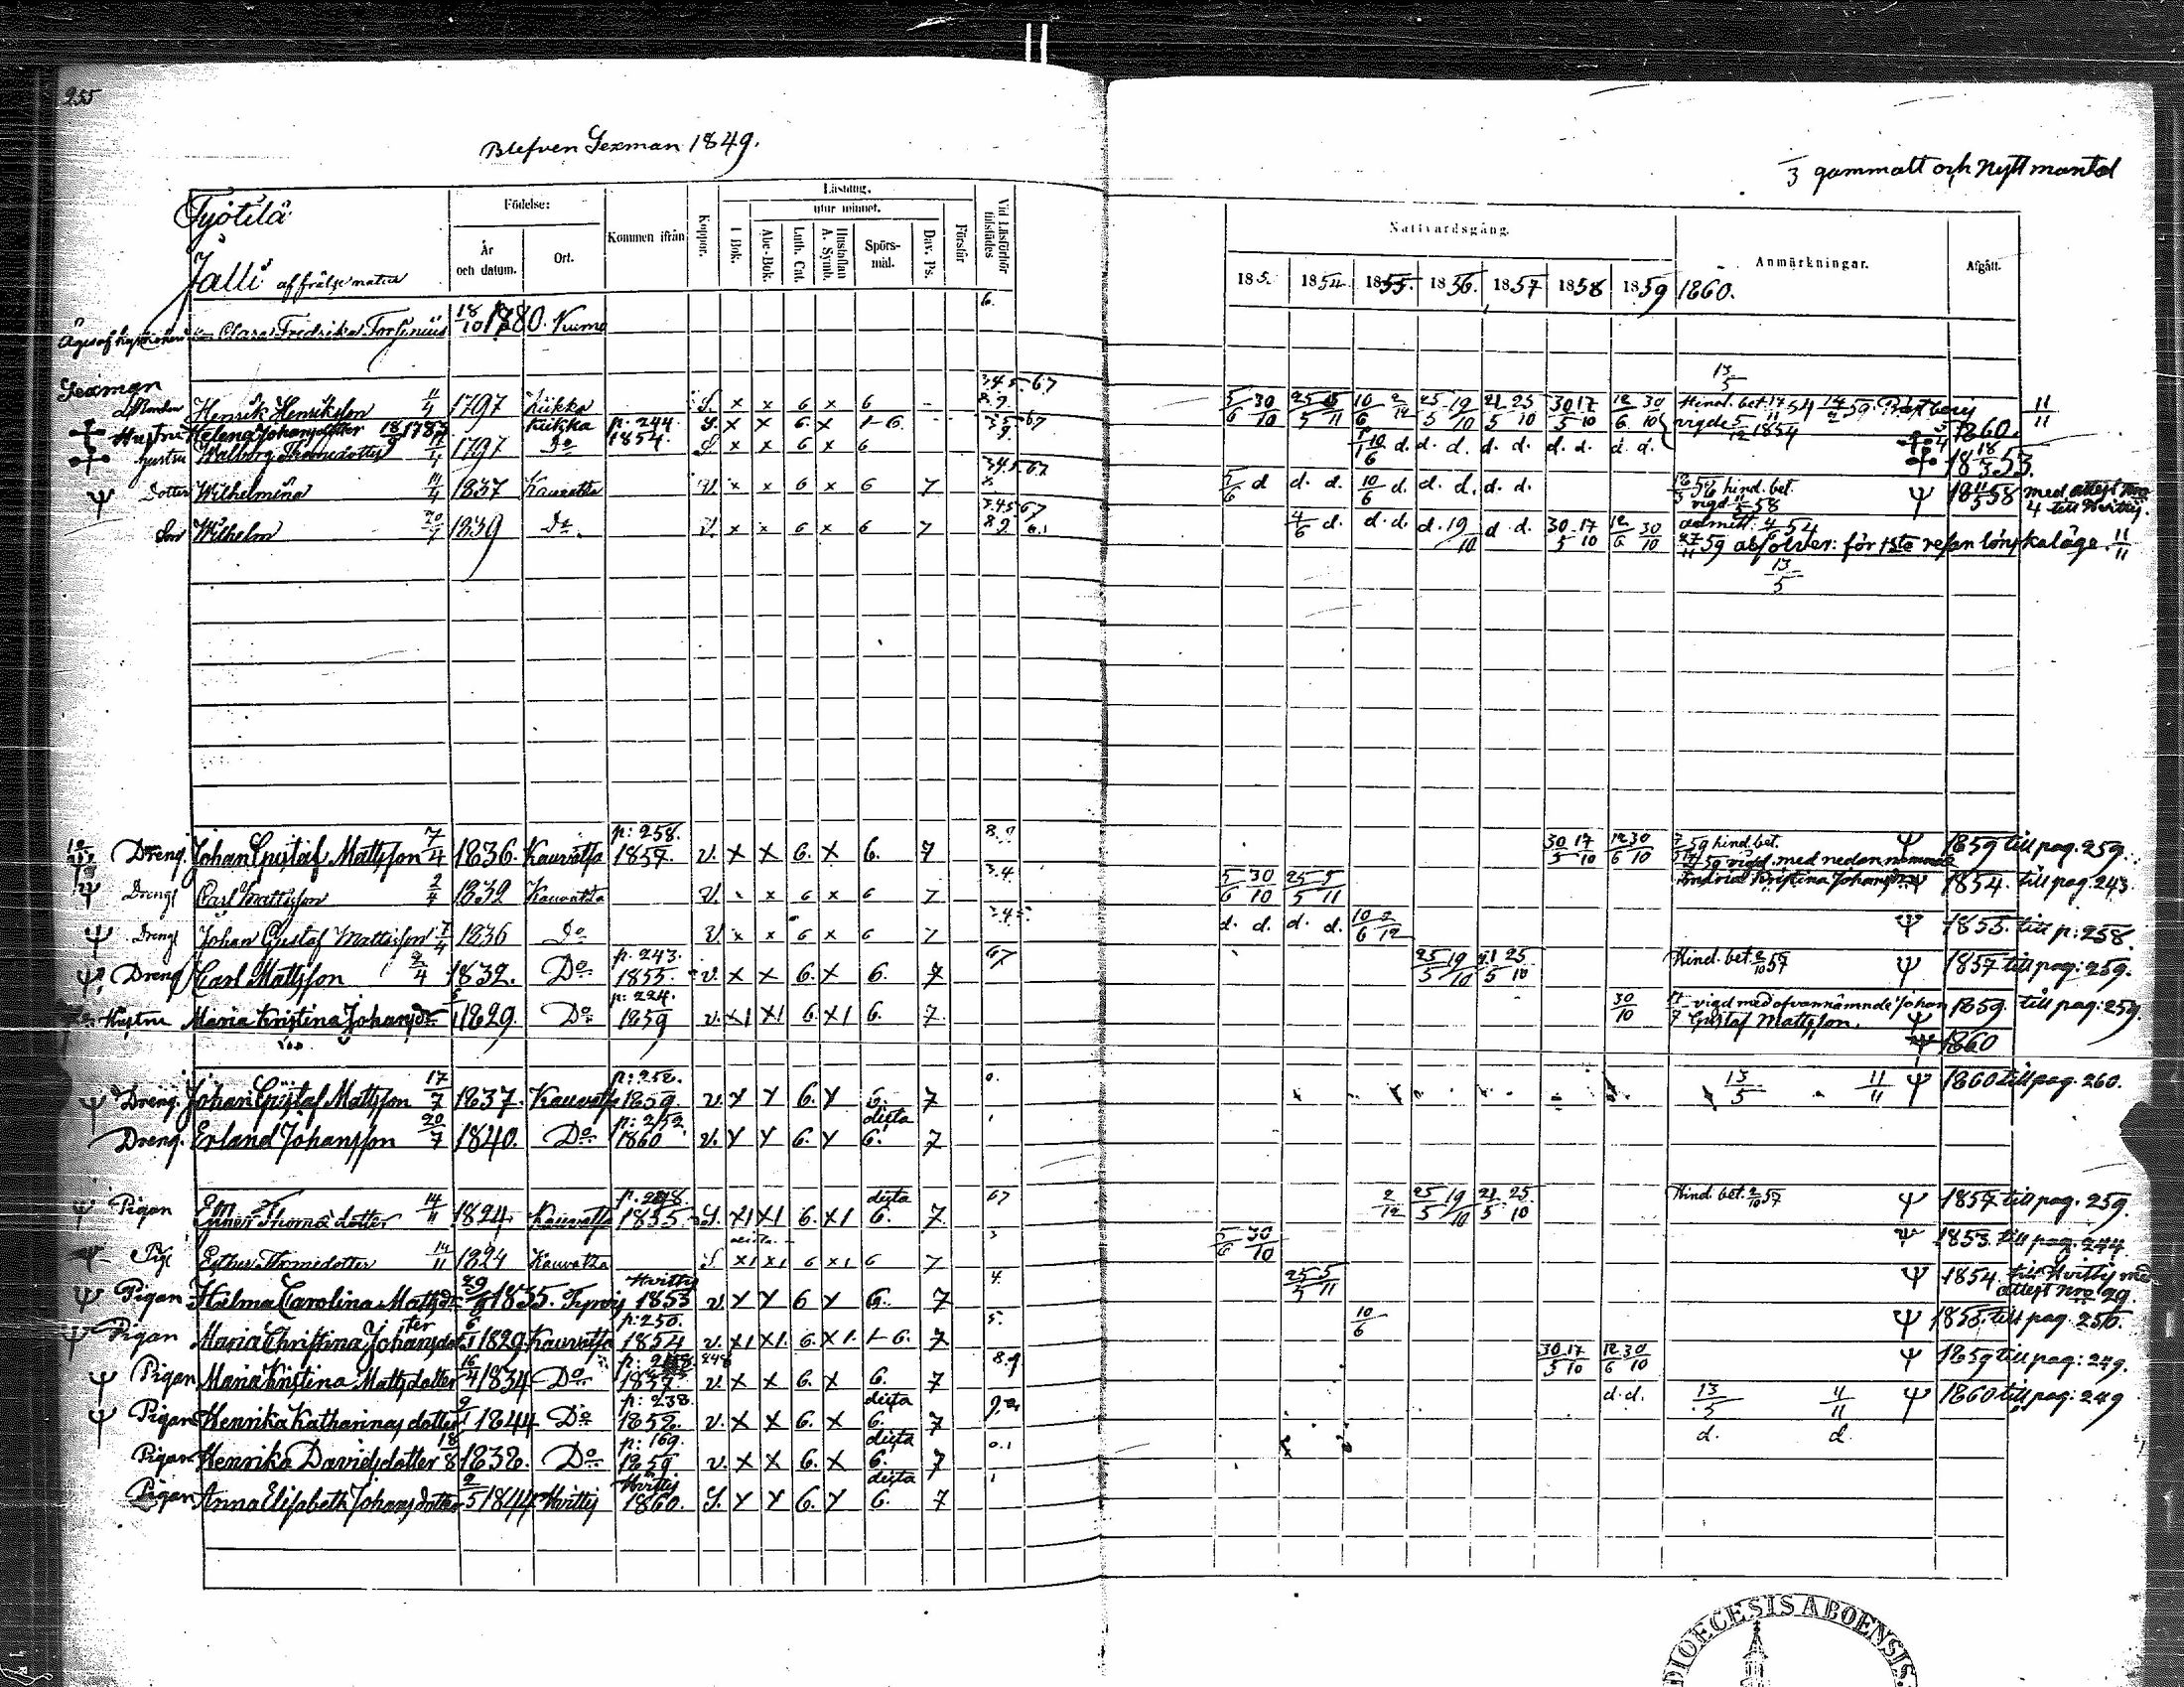 255
Blefven Sexman 1849.
1/3 gammalt och Nytt mantal
Työtilä
Jalli af frälse natur
Födelse:
År och datum.
Ort.
Kommen ifrån
Koppor.
Läsning.
I Bok.
utur minnet.
Abc-Bok.
Luth. Cat.
Hustaflan A. Symb.
Spörsmål.
Dav. Ps.
Förstår
Vid Läsförhör tillstädes
Nattvardsgång.
185. 1854 1855. 1856. 1857 1858 1859 1860.
Anmärkningar.
Afgått.
Clara Fredrika 18/10 1780. Kumo 6.
Sexman
Henrik Henriksson 11/4 1797 Kiikka S. x x 6 x 6 5/6 30/10 10/6 2/12 25/5 19/10 21/5 25/10 30/5 17/10 12/6 30/10 Hind. bet. 11/11
Hustru Helena Johansdotter 18/5 1787 Kiikka p. 244. 1854. S. x x 6. x 1-6. vigde 5/12 1854 1860.
hustru Walborg Thomedotter 1797 Do S x x 6 x 6 1853.
Dotter Wilhelmina 11/4 1837 Kauvatsa V. x x 6 x 6 7 5/6 d d. d. 10/6 d. d. d. d. d. hind. bet. vigd 58 1858 med attest Nro 4 till Hvittis.
Son Wilhelm 20/7 1839 Do V. x x 6 x 6 7 4/6 d. d. d. d. 19/10 d d. 30/5 17/10 12/6 30/10 admitt. 4/6 54
27/11 59 absolver: för 1sta resan lönskaläge. 11/11
13/5
Dreng Johan Gustaf Mattsson 7/4 1836. Kauvatsa p: 258. 1857. v. x x 6. x 6. 7 8.9 30/5 17/10 12/6 30/10 59 hind. bet. 1859 till pag. 259.
59 vigd med nedannämnde Maria Kristina Johansdr
Dreng Carl Mattsson 2/4 1832 Kauvatsa V. x x 6 x 6 7 3.4. 5/6 30/10 25/5 5/11 1854. till pag. 243.
Dreng Johan Gustaf Mattsson 7/4 1836 Do V. x x 6 x 6 7 3.4.5. d. d. d. d. 10/6 2/12 1855. till p: 258.
Dreng Carl Mattsson 2/4 1832. Do p. 243. 1855. v. x x 6. x 6. 7 67 25/5 19/10 21/5 25/10 Hind. bet. 2/10 57 1857 till pag: 259.
Hustru Maria Kristina Johansdr 1829. Do p: 224. 1859 v. x1 x1 6. x1 6. 7 30/10 vigd med ofvannämnde Johan Gustaf Mattsson. 1859. till pag: 259.
1860
Dreng. Johan Gustaf Mattsson 17/7 1837. Kauvatsa p: 258. 1859. v. x x 6. x 6. 7 0. 13/5 11/11 1860 till pag. 260.
Dreng. Erland Johansson 20/7 1840. Do p: 252. 1860 v. x x 6. x dicta 6. 7 1
Pigan Ester Thomadotter 14/11 1824. Kauvatsa 1855. S. x1 x1 6. x1 dicta 6. 7 67 2/12 25/5 19/10 21/5 25/10 Hind. bet. 2/10 57 1857 till pag. 259.
Pig. Esther Thomedotter 14/11 1824 Kauvatsa S x1 x1 6 x1 6 7 3 5/6 30/10 1853. till pag. 244.
Pigan Hilma Carolina Matsdr 29/9 1835. Tyrvis Hvittis 1853 v. x x 6 x 6. 7 4. 25/5 5/11 1854. till Hvittis med attest nro 29.
Pigan Maria Christina Johansdotter 6/5 1829 Kauvatsa p: 250. 1854 v. x1 x1. 6. x1. 1-6. 7 5. 10/6 1855. till pag. 256.
Pigan Maria Kristina Mattsdotter 16/4 1834 Do 248 1857. v. x x 6. x 6. 7 8.9 30/5 17/10 12/6 30/10 1859 till pag: 249.
Pigan Henrika Katharinas dotter 1844 Do p: 238. 1852. v. x x 6. x dicta 6. 7 d. d. 13/5 11/11 1860 till pag: 249
Pigan Henrika Davidsdotter 18/8 1838. Do p: 169. 1859 v. x x 6. x dicta 6. 7 0.1 d. d.
Pigan Anna Elisabeth Johansdotter 2/5 1844 Hvittis Hvittis 1860. S. x x 6. x dicta 6. 7 1
DIOECESIS ABOENSIS.